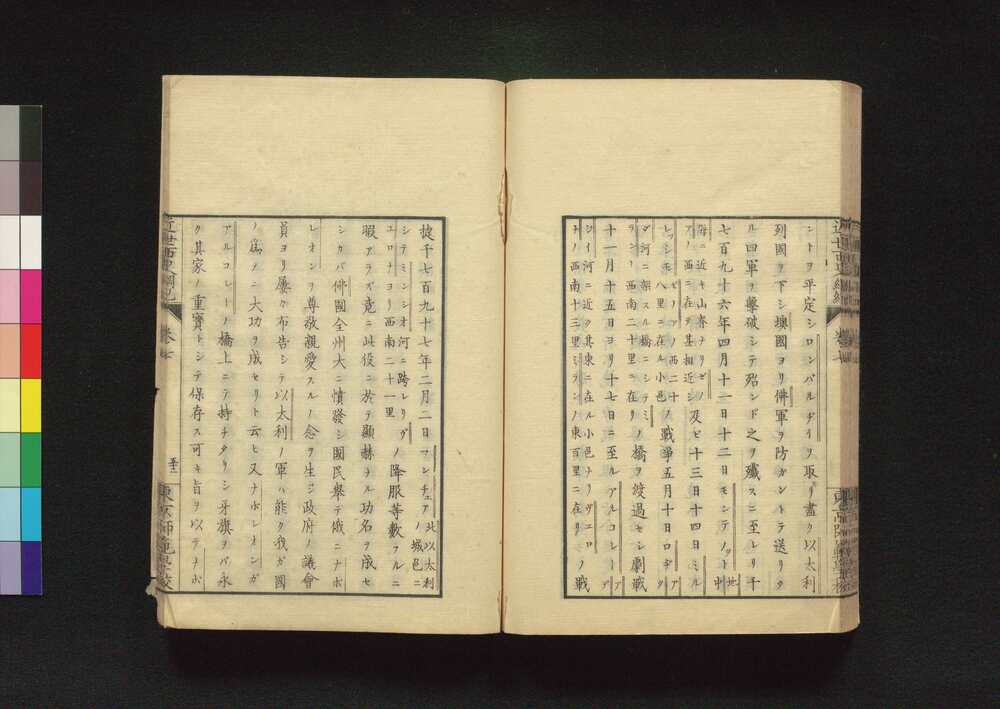 ントヲ平定シロンバルヂイヲ取リ盡ク以太利
列國ヲ下シ墺國ヨリ佛軍ヲ防ガント送リタ
ル四軍ヲ擊破シテ殆ンド之ヲ殲スニ至レリ千
七百九十六年四月十一日十二日モンテノット
及ビ十三日十四日ミル
戰爭五月十日ロヂ
ノ橋ヲ渡過セシ劇戰
十一月十五日ヨリ十七日ニ至ルアルコレー
ノ戰
捷千七百九十七年二月二日マンチュア
ノ城邑ニ
シテミンシオ河ニ跨レリ
エロナヨリ西南二十一里
ノ降服等數フルニ
暇アラズ竟ニ此役ニ於テ顯赫タル功名ヲ成セ
シカバ佛國全州大ニ憤發シ國民舉テ俄ニナポ
レオンヲ尊敬親愛スルノ念ヲ生シ政府ノ議會
員ヨリ屢々布告シテ以太利ノ軍ハ能ク我ガ國
ノ爲メニ大功ヲ成セリト云ヒ又ナポレオンガ
アルコレートノ橋上ニテ持チタリシ牙旗ヲバ永
ク其家ノ重寶トシテ保存ス可キ旨ヲ以テナポ
近世西史綱紀
卷七
東京師範學校